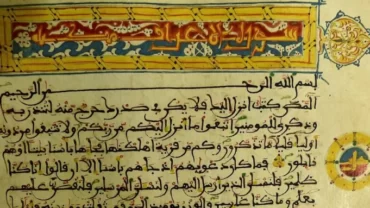 سورة الاعراف
بسم الله الرحمن الرحيم
المص كتب انزل اليك فلا يكن في صدرك حرج منه لتنذر به
وذكرى للمومنين اتبعوا ما انزل اليكم من ربكم ولا تتبعوا من دونه
اوليا قليلا ما تذكرون وكم من قرية اهلكنها فجاها باسنا بيتا او هم
قايلون فما كان دعويهم اذ جاهم باسنا الا ان قالوا انا كنا
ظلمين فلنسلن الذين ارسل اليهم ولنسلن المرسلين فلنقصن عليهم
بعلم وما كنا غايبين والوزن يوميذ